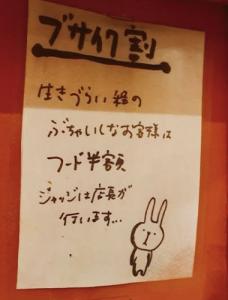 ブサイク割
生きづらい程の
ぶちゃいくなお客様は
フード半額
ジャッジは店長が
行います…